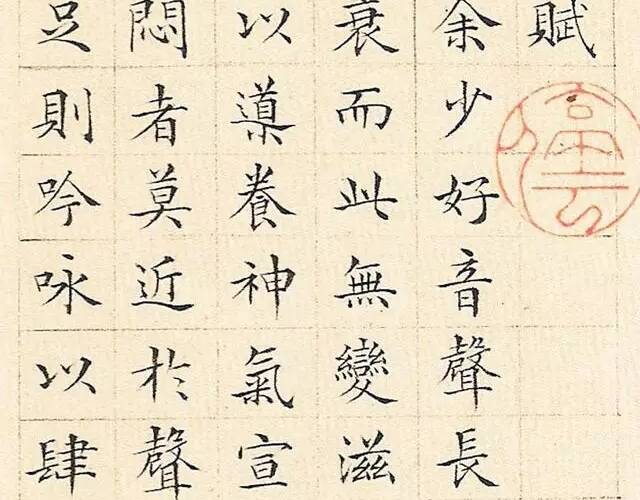 賦
余少好音聲長
衰而此無變滋
以導養神氣宣
悶者莫近於聲
足則吟咏以肆